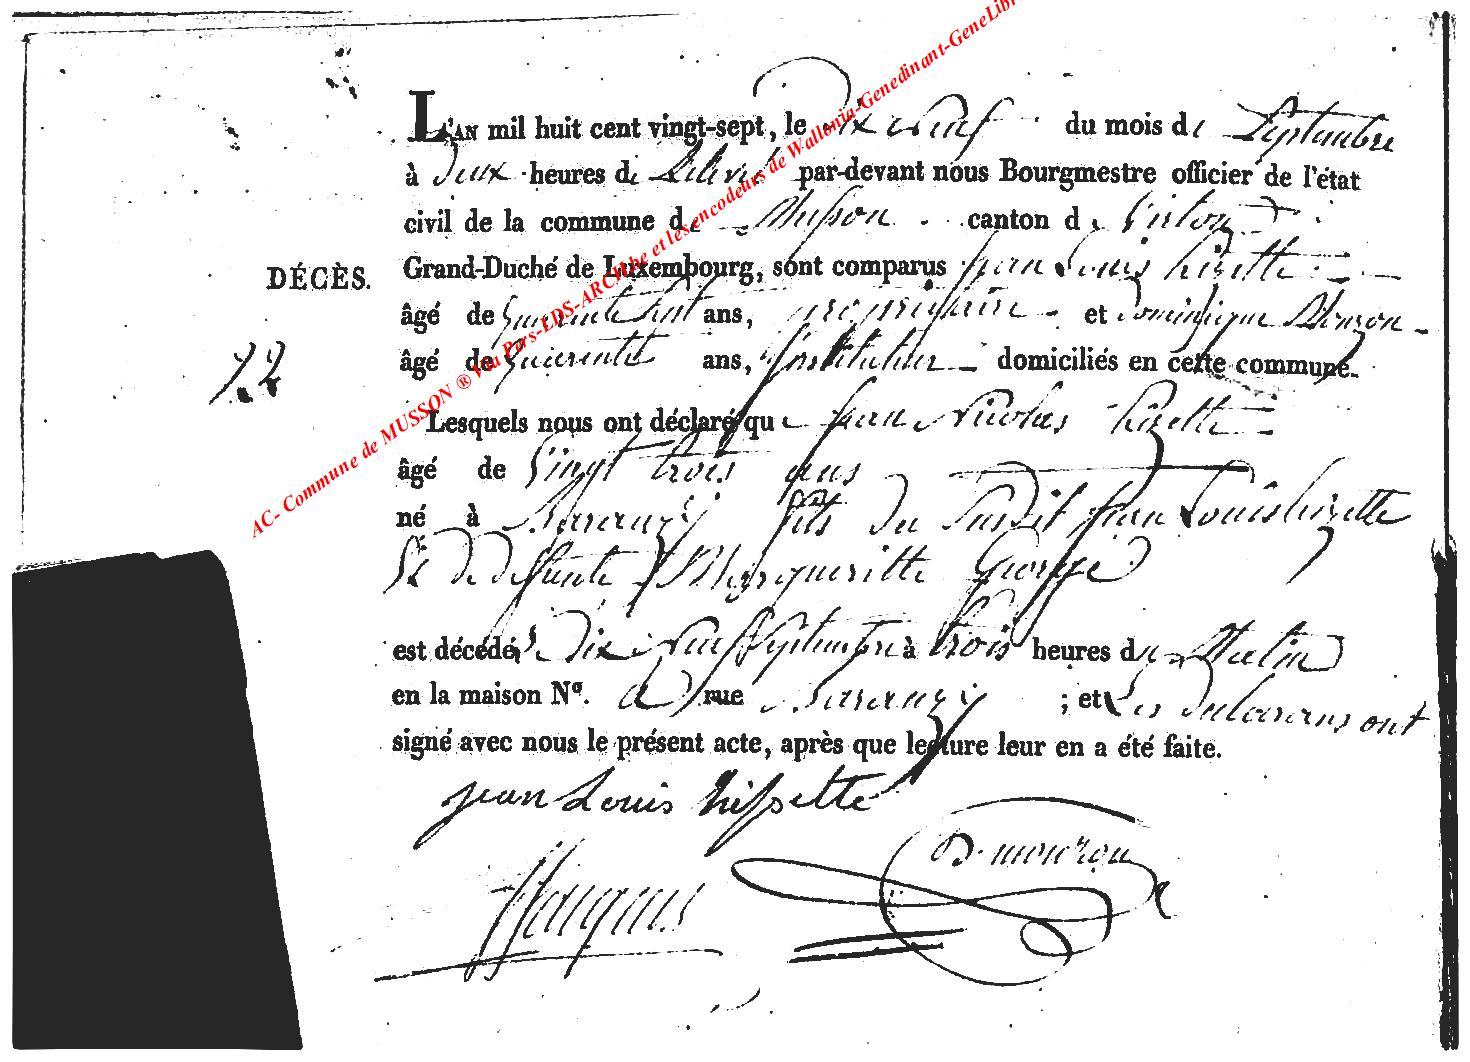 AC- Commune de MUSSON ® Via Pars-EDS-ARCH.be et les encodeurs de Wallonia-Genedinant-GeneLibr
L'AN mil huit cent vingt-sept, le Dix Neuf du mois de Septembre
à deux heures de Relevé par-devant nous Bourgmestre officier de l'état
civil de la commune de Musson canton de Virton
DÉCÈS.
Grand-Duché de Luxembourg, sont comparus Jean Louis hizette
âgé de quarente huit ans, propriétaire et Dominique Monzon
22
âgé de quarente ans, Instituteur domiciliés en cette commune.
Lesquels nous ont déclaré que Jean Nicolas hizette
âgé de Vingt trois ans
né à Baranzy fils du Susdit Jean Louis hizette
Et de deffunte Margueritte George
est décédé le dix Neuf Septembre à trois heures du Matin
en la maison Nº. rue Baranzy ; et Les Declarans ont
signé avec nous le présent acte, après que lecture leur en a été faite.
jean Louis hissette
D. mouzon